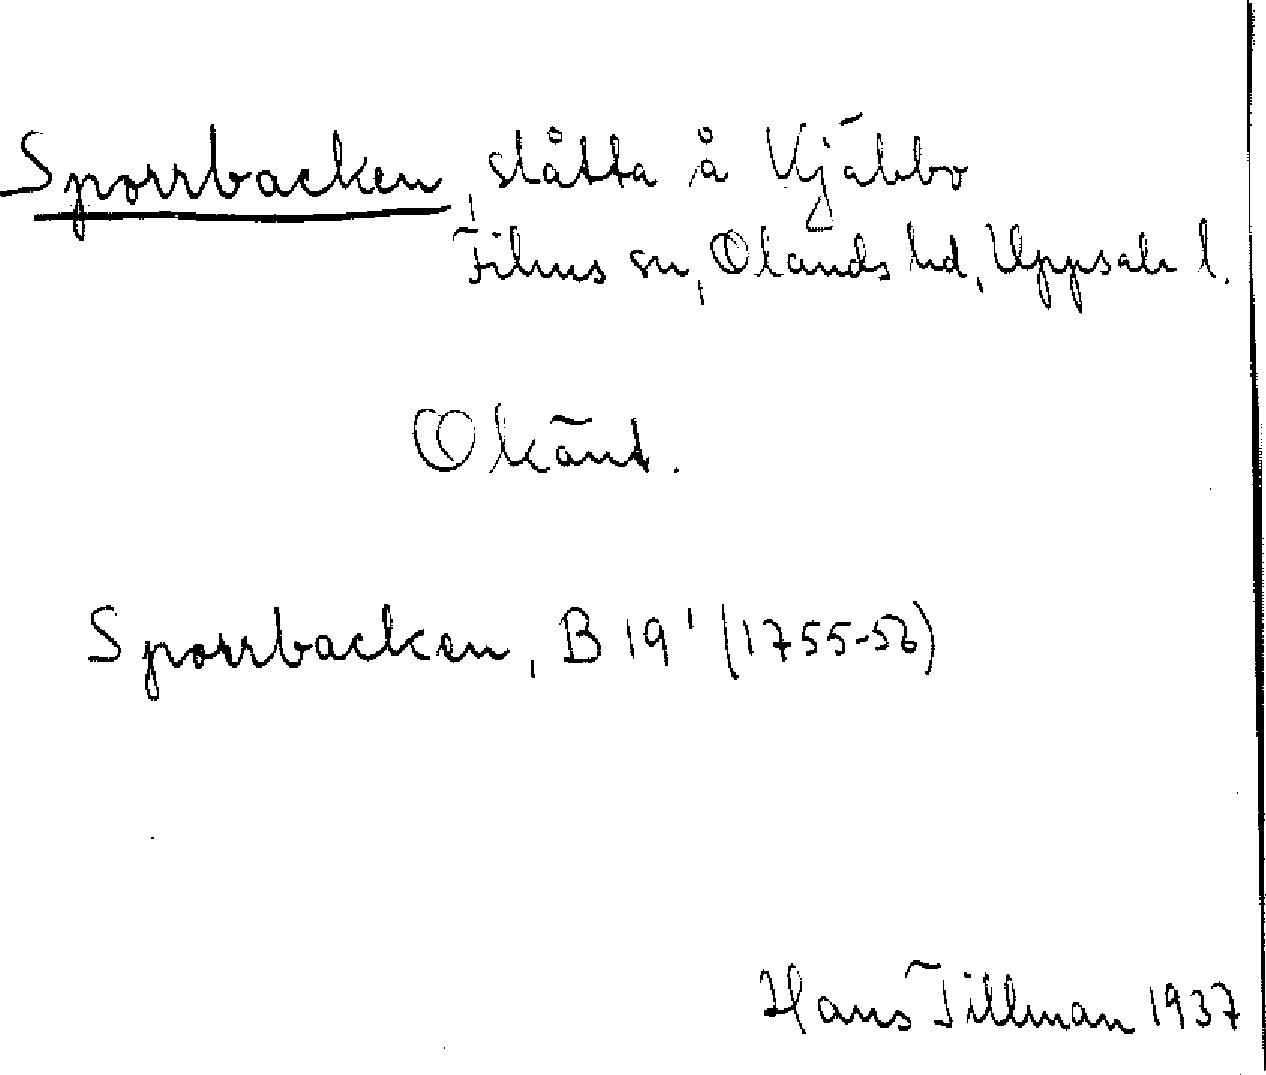 Sporrbacken, slåtta å Vjäbbo
Films sn, Olands hd, Uppsala l.
Okänt.
Sporrbacken, B 19' (1755-56)
Hans Tillman 1937